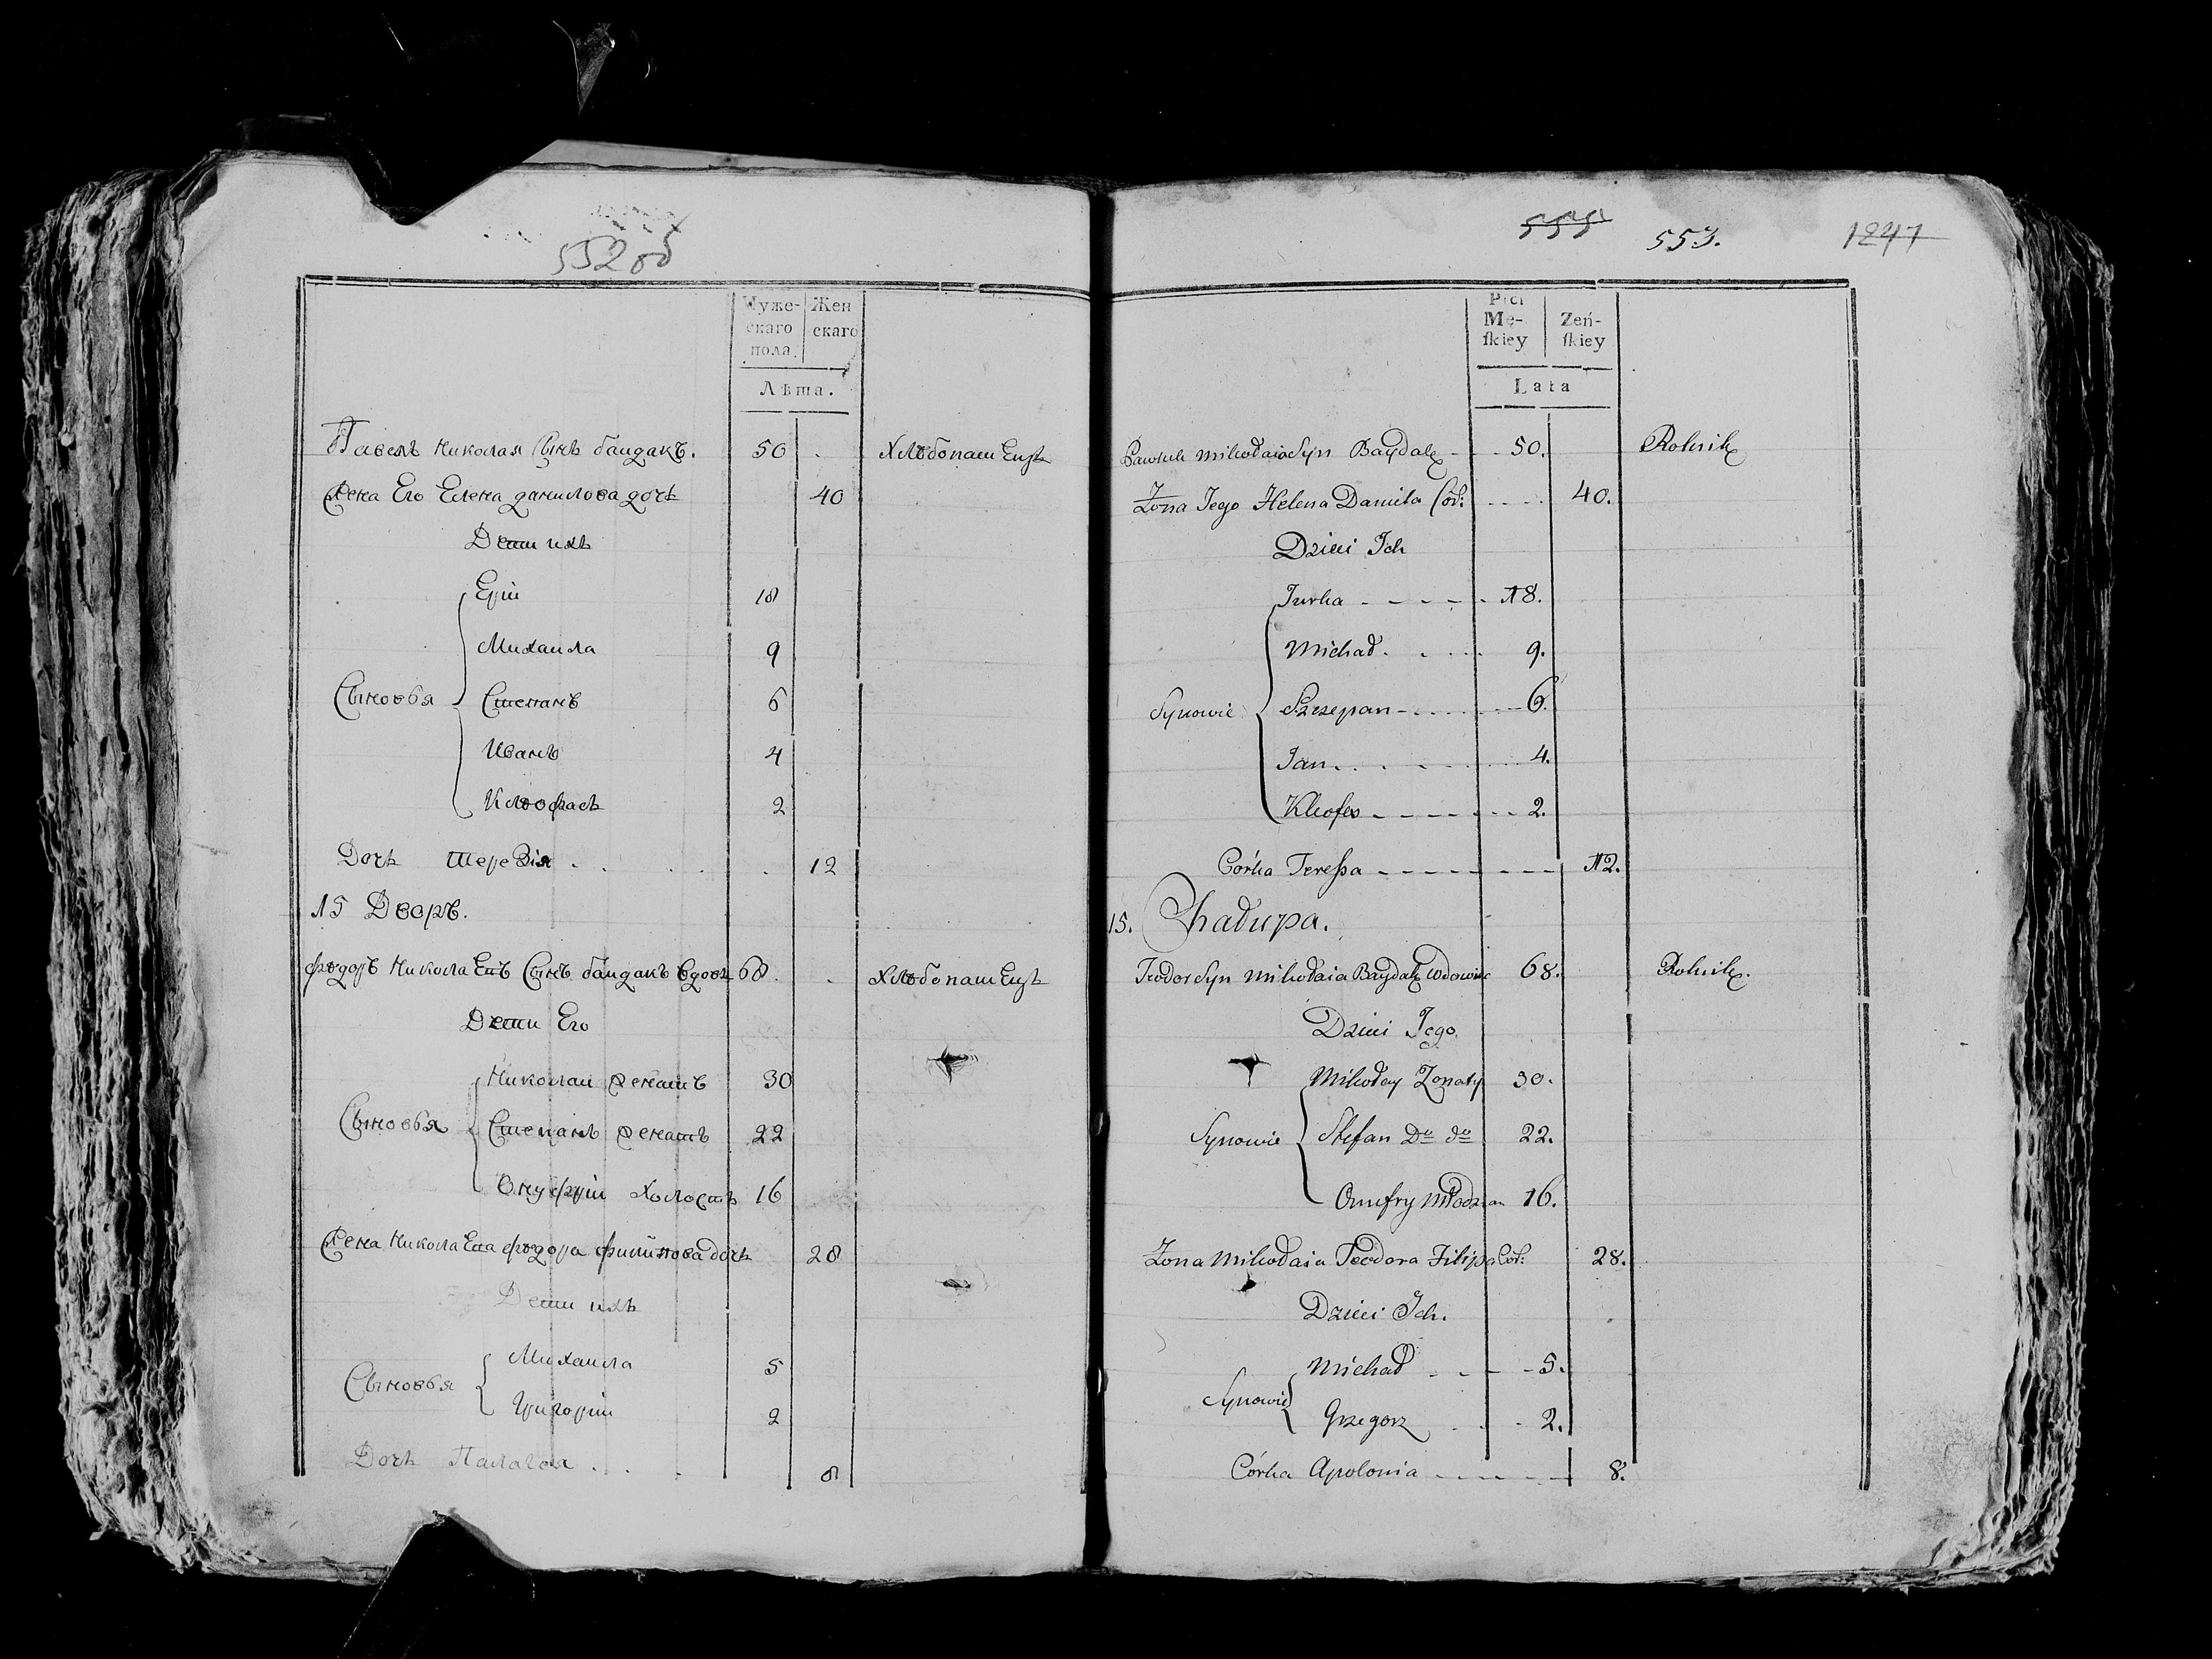 552 об
Мужескаго пола
Женскаго
Лѣта.
Павелъ Николая Сынъ байдакъ. 50 . хлѣбопашЕцъ
Жена Его Елена данилова дочь 40
Дети ихъ
Ерій 18
Михаила 9
Сыновья Степанъ 6
Иванъ 4
Клеофасъ 2
Дочь Терезія . . . . . 12
15 Дворъ.
Фѣдоръ НиколаЕвъ Сынъ байдакъ вдовъ 68. . хлѣбопашЕцъ
Дети Его
Николай женатъ 30
Сыновья Степанъ женатъ 22
Онуфрій холостъ 16
Жена НиколаЕва фѣдора филипова дочь 28
Дети ихъ
Михаила 5
Сыновья
Григорій 2
Дочь Палагея . . . 8
555 553. 1241
Płci Mę-skiey
Żeń-skiey
Lata
Pawluk Mikołaia Syn Baydak 50. Rolnik
Żona Jego Helena Daniela Cór: 40.
Dzieci Ich
Jurka 18.
Michał 9.
Synowie Szczepan 6.
Jan 4.
Kleofas 2.
Córka Teressa 12.
15. Chałupa.
Teodor Syn Mikołaia Baydak wdowiec 68. Rolnik.
Dzieci Jego
Mikołay Żonaty 30.
Synowie Stefan Do do 22.
Onufry Młodzian 16.
Żona Mikołaia Teodora Filipa Cór: 28.
Dzieci Ich.
Michał 5.
Synowie
Grzegorz 2.
Córka Apolonia 8.